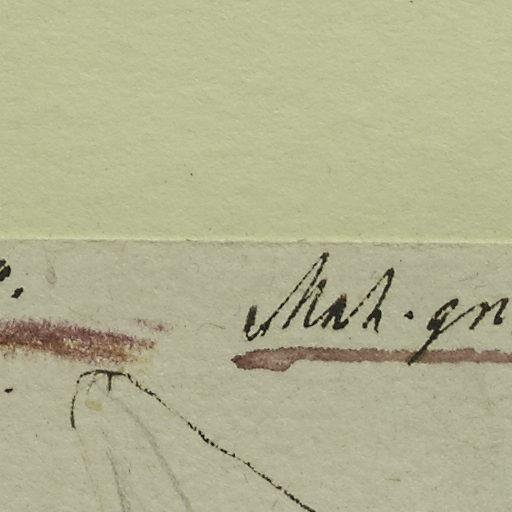 Mah. gn